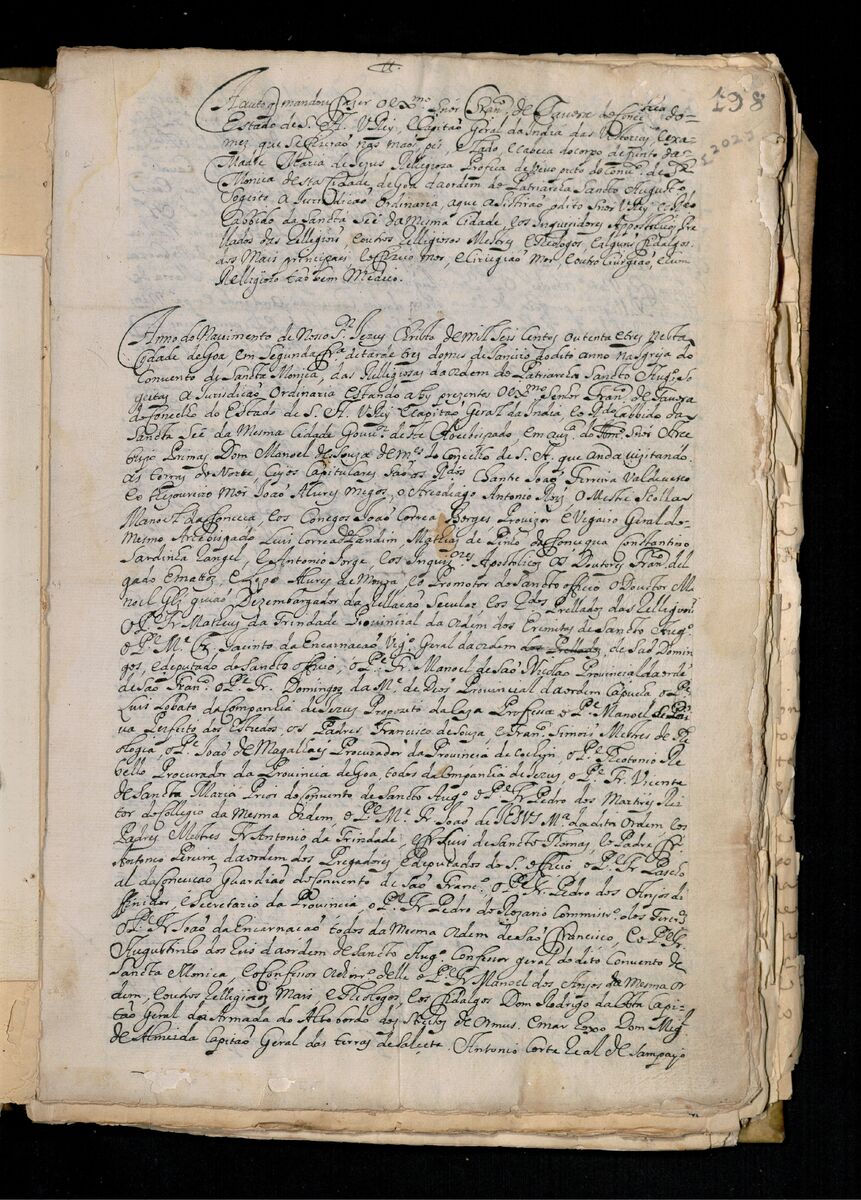 198
2023
Auto q̃ mandou fazer o Ex.mo Snõr Fran.co de Tavora do Conc.o do
Estado de S. A. V.Rey, e Capitaõ Geral da India das Vitorias, e exa-
mez, que se fizeraõ nas maos, pés, e lado, e cabeca do corpo defunto da
Madre Maria de Jezus Relligiosa Professa de veo preto do Conu.to de S.ta
Monica de sta Cidade de Goa da ordem do Patriarcha Sancto Augustinho
Sogeito a Jurisdicaõ Ordinaria, a que asistiraõ o dito Snõr V.Rey, o
Cabbido da Sancta Seé da mesma Cidade, e os Inquizidores Appostolicos, Pre-
llados das Relligioñs, e outros Relligiosos Mestres, e Theologos, e alguns fidalgos
dos mais principaes, e o Fizico mor, e Cirurgiaõ mor, e outro Cirurgiaõ, e hum
Relligiozo taõ bem Medico.
Anno do Nacimento de Nosso S.or Jezus Christo de mil seis centos outenta e tres nesta
Cidade de Goa em segunda fr.a de tarde tres do mes de do dito anno na Igreja do
Convento de Sancta Monica, das Relligiosas da ordem do Patriarcha Sancto Aug.o so-
geitas a Jurisdicaõ Ordinaria estando ahy prezentes o Ex.mo Senõr Fran.co de Tavora
do Concelho do Estado de S. A. V.Rey e Capitaõ Geral da India, e o R.do Cabbido da
Sancta Seé da mesma Cidade Gou.or deste Arcebispado em auz.a do Snõr Arce-
bispo Primas Dom Manoel de Souza de M.es do Concelho de S. A. que anda vizitando
as terras do Norte, cujos Capitulares saõ os R.dos Chantre Joaõ Ferreira Valdevesso
e o thezoureiro mor Joaõ Alvres Migos, o Arcediago Antonio Roiz, o Mestre Scollas
Manoel da Fonceca, e os Conegos Joaõ Correa Borges Provizor e Vigairo Geral do
mesmo Arcebispado Luis Correa Zandim Mathias de Pinto da Fonsequa Constantino
Sardinha Rangel, e Antonio Jorge, e os Inquiz.res Apostolicos os Doutores Fran.co del
gado e Mattos, e Lopo Alvres de Moura, e o Promotor do Santo officio o Doutor Ma-
noel Glz guiaõ Dezembargador da Rellacaõ Secular, e os R.dos Prellados das Relligioñs
o P.e Fr. Matheus da Trindade Provincial da ordem dos Eremitas de Sancto Aug.o
o P.e M.e Fr. Jacinto da Encarnacaõ Vig.o Geral da ordem dos Prellados de Saõ Domin
gos, e deputado do Sancto officio, o P.e Fr. Manoel de Saõ Nicolao Provincial da ordẽ
de Saõ Fran.co o P.e Fr. Domingos da M.e de Deos Provincial da ordem Capucha o P.e
Luis Lobato da Companhia de Jezus Preposito da Caza Professa o P.e Manoel de Pai
va Perfeito dos Estudos, os Padres Francisco de Souza, e Fran.co Simois Mestres de Th
ologia o P.e Joaõ de Magallais Procurador da Provincia de Cochym o P.e Theotonio Re
bello Procurador da Provincia de Goa, todos da Companhia de Jezus, o P.e Fr. Vicente
de Sancta Maria Prior do Convento de Sancto Aug.o o P.e Fr. Pedro dos Martires Rei
tor do Collegio da mesma ordem o P.e M.e Fr. Joaõ de IESVS M.a da dita ordem, e os
Padres Mestres Fr. Antonio da Trindade, e Fr. Luis de Sancto Thomas, e o Padre Fr.
Antonio Pereira da ordem dos Pregadores, e deputados do S.to officio o P.e Fr. Pascho
al da Conceicaõ Guardiaõ do Convento de Saõ Franc.o o P.e Fr. Pedro dos Anjos di
ffinidor, e Secretario da Provincia o P.e Fr. Pedro do Rozario Commissr.o dos Terc.os
o P.e Fr. Joaõ da Encarnacaõ todos da mesma ordem de Saõ Francisco, e o P.e Fr.
Augustinho dos Reis da ordem de Sancto Aug.o Confessor geral do dito Convento de
Sancta Monica, e o Confessor ordinr.o delle o P.e Fr. Manoel dos Anjos da mesma or
dem, e outros Relligiozos Mais, e Theologos, e os fidalgos Dom Rodrigo da Costa Capi-
taõ Geral da Armada do Alto bordo dos Streitos de Ormus, e mar Roxo Dom Mig.l
de Almeida Capitaõ Geral das terras de Salcete. Antonio Corte Real de Sampayo